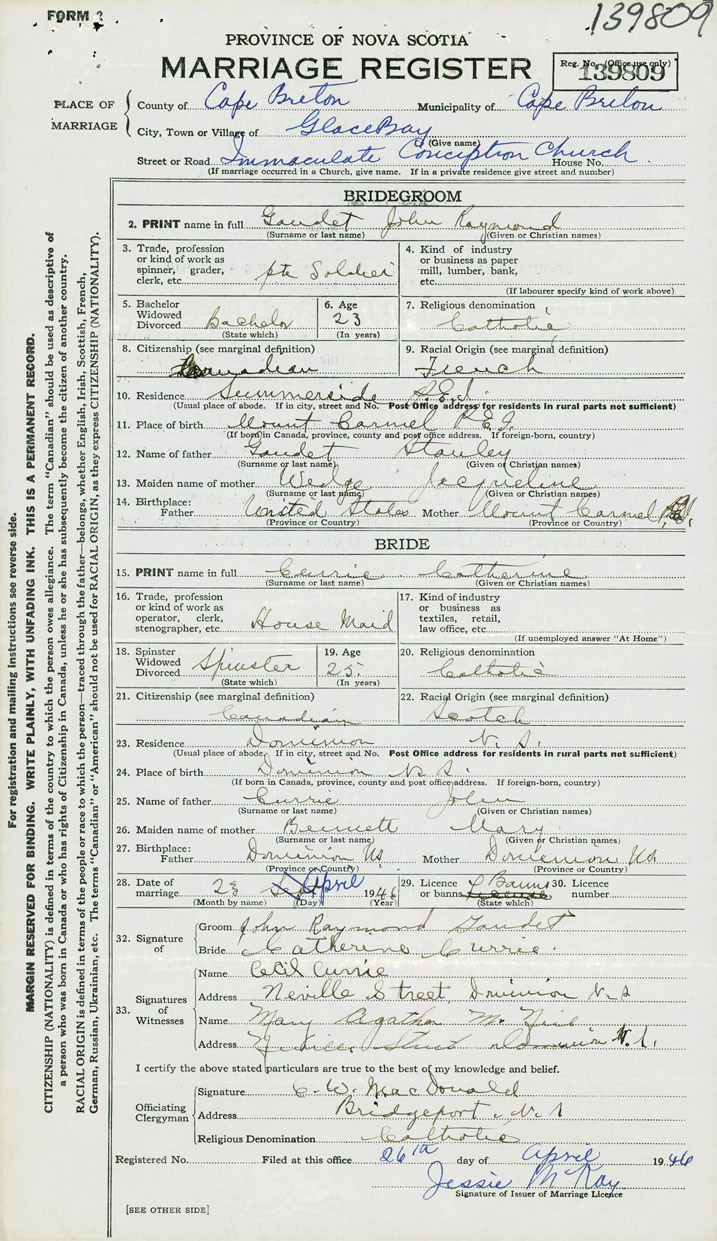 FORM 2
139809
PROVINCE OF NOVA SCOTIA
MARRIAGE REGISTER
Reg. No. (Office use only)
139809
PLACE OF MARRIAGE
County of Cape Breton Municipality of Cape Breton
City, Town or Village of Glace Bay
(Give name)
Street or Road Immaculate Conception Church House No.
(If marriage occurred in a Church, give name. If in a private residence give street and number)
BRIDEGROOM
2. PRINT name in full Gaudet John Raymond
(Surname or last name) (Given or Christian names)
3. Trade, profession or kind of work as spinner, grader, clerk, etc. pte Soldier
4. Kind of industry or business as paper mill, lumber, bank, etc.
(If labourer specify kind of work above)
5. Bachelor Widowed Divorced Bachelor
(State which)
6. Age 23
(In years)
7. Religious denomination Catholic
8. Citizenship (see marginal definition) Canadian
9. Racial Origin (see marginal definition) French
10. Residence Summerside P.E.I.
(Usual place of abode. If in city, street and No. Post Office address for residents in rural parts not sufficient)
11. Place of birth Mount Carmel P.E.I.
(If born in Canada, province, county and post office address. If foreign-born, country)
12. Name of father Gaudet Stanley
(Surname or last name) (Given or Christian names)
13. Maiden name of mother Wedge Jacqueline
(Surname or last name) (Given or Christian names)
14. Birthplace: Father United States Mother Mount Carmel P.E.I.
(Province or Country) (Province or Country)
BRIDE
15. PRINT name in full Currie Catherine
(Surname or last name) (Given or Christian names)
16. Trade, profession or kind of work as operator, clerk, stenographer, etc. House Maid
17. Kind of industry or business as textiles, retail, law office, etc.
(If unemployed answer "At Home")
18. Spinster Widowed Divorced Spinster
(State which)
19. Age 25.
(In years)
20. Religious denomination Catholic
21. Citizenship (see marginal definition) Canadian
22. Racial Origin (see marginal definition) Scotch
23. Residence Dominion N.S.
(Usual place of abode. If in city, street and No. Post Office address for residents in rural parts not sufficient)
24. Place of birth Dominion N.S.
(If born in Canada, province, county and post office address. If foreign-born, country)
25. Name of father Currie John
(Surname or last name) (Given or Christian names)
26. Maiden name of mother Bennett Mary
(Surname or last name) (Given or Christian names)
27. Birthplace: Father Dominion NS Mother Dominion NS
(Province or Country) (Province or Country)
28. Date of marriage 23 April 1946
(Month by name) (Day) (Year)
29. Licence or banns Banns
(State which)
30. Licence number
32. Signature of
Groom John Raymond Gaudet
Bride Catherine Currie.
33. Signatures of Witnesses
Name Cecil Currie
Address Neville Street, Dominion N.S
Name Mary Agatha
Address Neville Street Dominion N.S.
I certify the above stated particulars are true to the best of my knowledge and belief.
Officiating Clergyman
Signature C. W. MacDonald
Address Bridgeport, N.S
Religious Denomination Catholic
Registered No. Filed at this office 26th day of April 1946
Jessie McKay
Signature of Issuer of Marriage Licence
[SEE OTHER SIDE]
For registration and mailing instructions see reverse side.
MARGIN RESERVED FOR BINDING. WRITE PLAINLY, WITH UNFADING INK. THIS IS A PERMANENT RECORD.
CITIZENSHIP (NATIONALITY) is defined in terms of the country to which the person owes allegiance. The term "Canadian" should be used as descriptive of
a person who was born in Canada or who has rights of Citizenship in Canada, unless he or she has subsequently become the citizen of another country.
RACIAL ORIGIN is defined in terms of the people or race to which the person—traced through the father—belongs, whether English, Irish, Scottish, French,
German, Russian, Ukrainian, etc. The terms "Canadian" or "American" should not be used for RACIAL ORIGIN, as they express CITIZENSHIP (NATIONALITY).